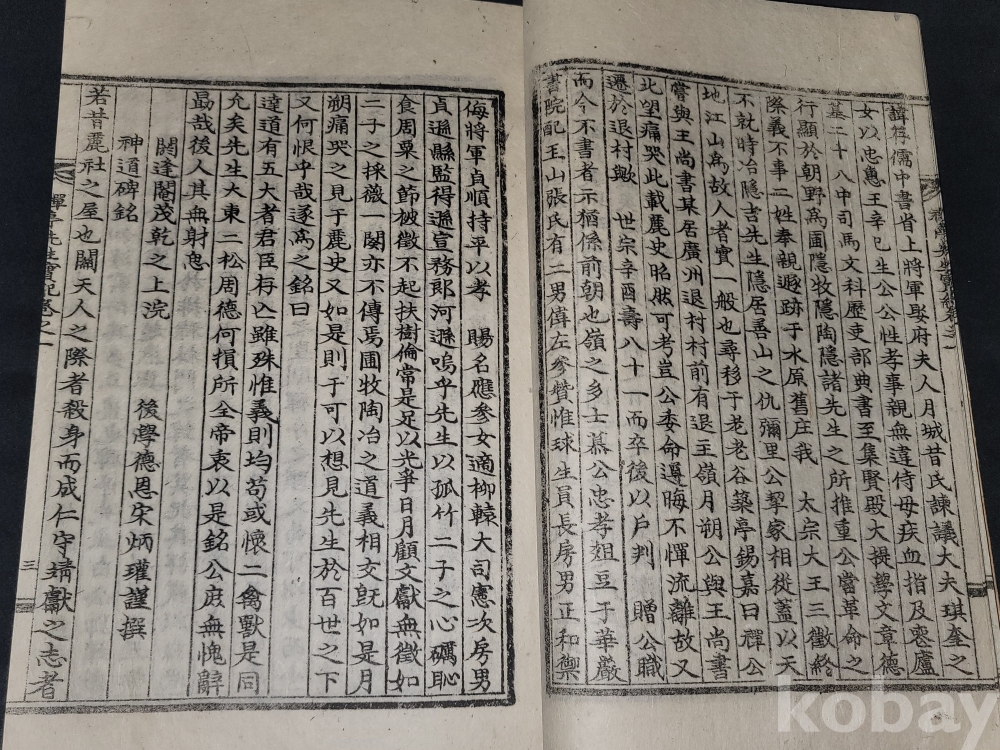 諱存儒中書省上將軍娶府夫人月城昔氏諫議大夫琪奎之
女以忠惠王辛巳生公公性孝事親無違侍母疾血指及喪廬
墓二十八中司馬文科歷吏部典書至集賢殿大提學文章德
行顯於朝野為圃隱牧隱陶隱諸先生之所推重公當革命之
際義不事二姓奉親遐跡于水原舊庄我　太宗大王三徵終
不就時冶隱吉先生隱居善山之仇彌里公挈家相從蓋以天
地江山為故人者實一般也尋移于老老谷築亭錫嘉曰禪公
嘗與王尚書某居廣州退村村前有退王嶺月朔公與王尚書
北望痛哭此載麗史昭然可考豈公委命遵晦不憚流離故又
遷於退村歟　世宗辛酉壽八十一而卒後以戶判　贈公職
而今不書者示猶係前朝也嶺之鄉士慕公忠孝俎豆于華巖
書院配玉山張氏有二男偉左參贊惟球生員長房男正和禦
侮將軍貞順持平以孝　賜名應參女適柳轅大司憲次房男
貞遜縣監得遜宣務郎河遜嗚乎先生以孤竹二子之心礪恥
食周粟之節被徵不起扶樹倫常是足以光爭日月顧文獻無徵如
二子之採薇一闋亦不傳焉圃牧陶冶之道義相交旣如是月
朔痛哭之見于麗史又如是則于可以想見先生於百世之下
又何恨乎哉遂為之銘曰
達道有五大者君臣存亡雖殊惟義則均苟或懷二禽獸是同
允矣先生大東二松周德何損所全帝衷以是銘公庶無愧辭
勗哉後人其無射思
閼逢閹茂乾之上浣　後學德恩宋炳瓘謹撰
神道碑銘
若昔麗社之屋也關天人之際者殺身而成仁守靖獻之志者
三